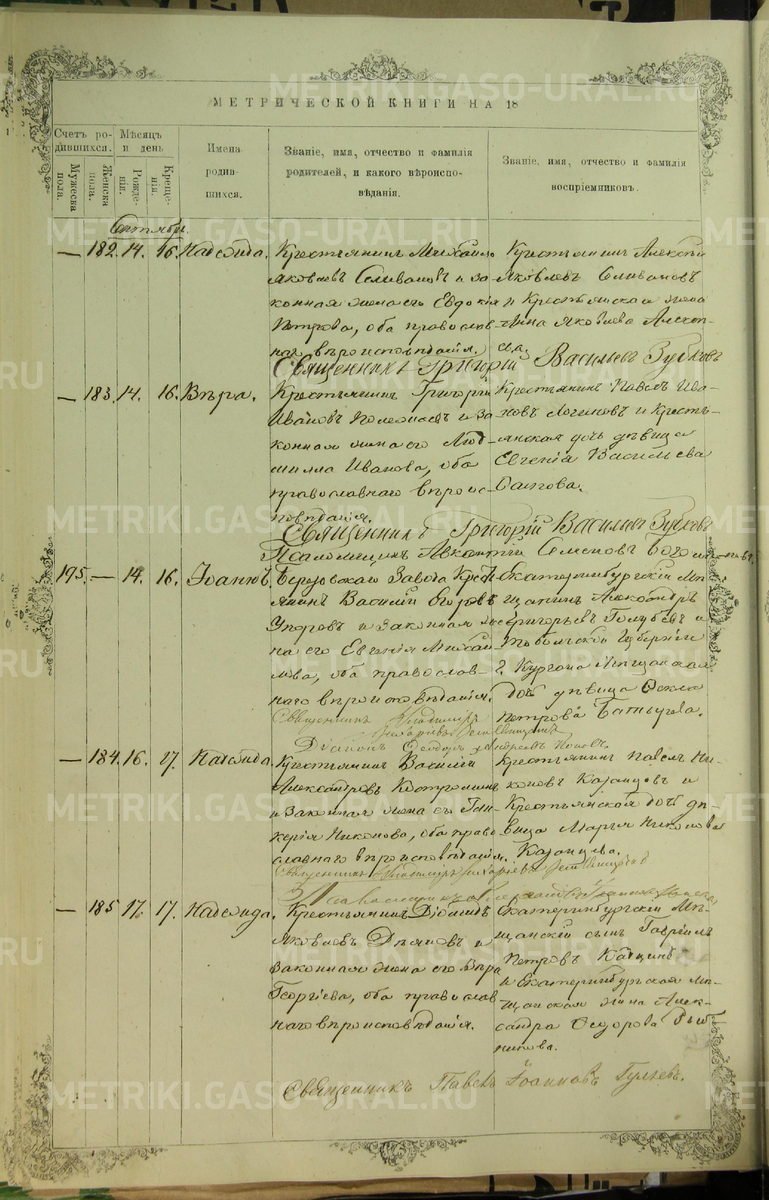 МЕТРИЧЕСКОЙ КНИГИ НА 18
Счетъ ро-
дившихся.
Мѣсяцъ
и день
Мужеска
пола.
Женска
пола.
Рожде-
нія.
Креще-
нія.
Имена
родив-
шихся.
Званіе, имя, отчество и фамилія
родителей, и какого вѣроиспо-
вѣданія.
Званіе, имя, отчество и фамилія
воспріемниковъ.
Сентябрь.
— 182. 14. 16. Надежда.
Крестьянинъ Михаилъ
Яковлевъ Селивановъ и за-
конная жена его Евдокія
Петрова, оба православ-
наго вѣроисповѣданія.
Крестьянинъ Алексѣй
Яковлевъ Селивановъ
и Крестьянская жена
Анна Яковлева
Священникъ Григорій Васильевъ Зубковъ
— 183. 14. 16. Вѣра.
Крестьянинъ Григорій
Ивановъ и за-
конная жена его Люд-
мила Иванова, оба
православнаго вѣроис-
повѣданія.
Крестьянинъ Павелъ Ива-
новъ Логиновъ и Кресть-
янская дочь дѣвица
Евгенія Васильева
Священникъ Григорій Васильевъ Зубковъ
Псаломщикъ Семеновъ
175. — 14. 16. Іоаннъ.
Березовскаго Завода Кресть-
янинъ Василій Егоровъ
и законная же-
на его Евгенія Михай-
лова, оба православ-
наго вѣроисповѣданія.
Екатеринбургскій Мѣ-
щанинъ Александръ
Григорьевъ Голубевъ и
Тобольской Губерніи
г. Кургана Мѣщанская
дочь дѣвица
Петрова
Священникъ Владиміръ
Діаконъ Ѳеодоръ Андреевъ Поповъ
— 184. 16. 17. Надежда.
Крестьянинъ Василій
Александровъ Костроминъ
и законная жена его Гли-
керія Никонова, оба право-
славнаго вѣроисповѣданія.
Крестьянинъ Павелъ Ни-
коновъ Казанцевъ и
Крестьянская дочь дѣ-
вица Марія Никонова
Казанцева.
Священникъ Владиміръ
— 185 17. 17. Надежда.
Крестьянинъ Діомидъ
Яковлевъ и
законная жена его Вѣра
Георгіева, оба православ-
наго вѣроисповѣданія.
Екатеринбургскій Мѣ-
щанскій сынъ Гавріилъ
Петровъ
и Екатеринбургская мѣ-
щанская жена Алек-
сандра Ѳедорова Рыб-
никова.
Священникъ Павелъ Іоанновъ
METRIKI.GASO-URAL.RU